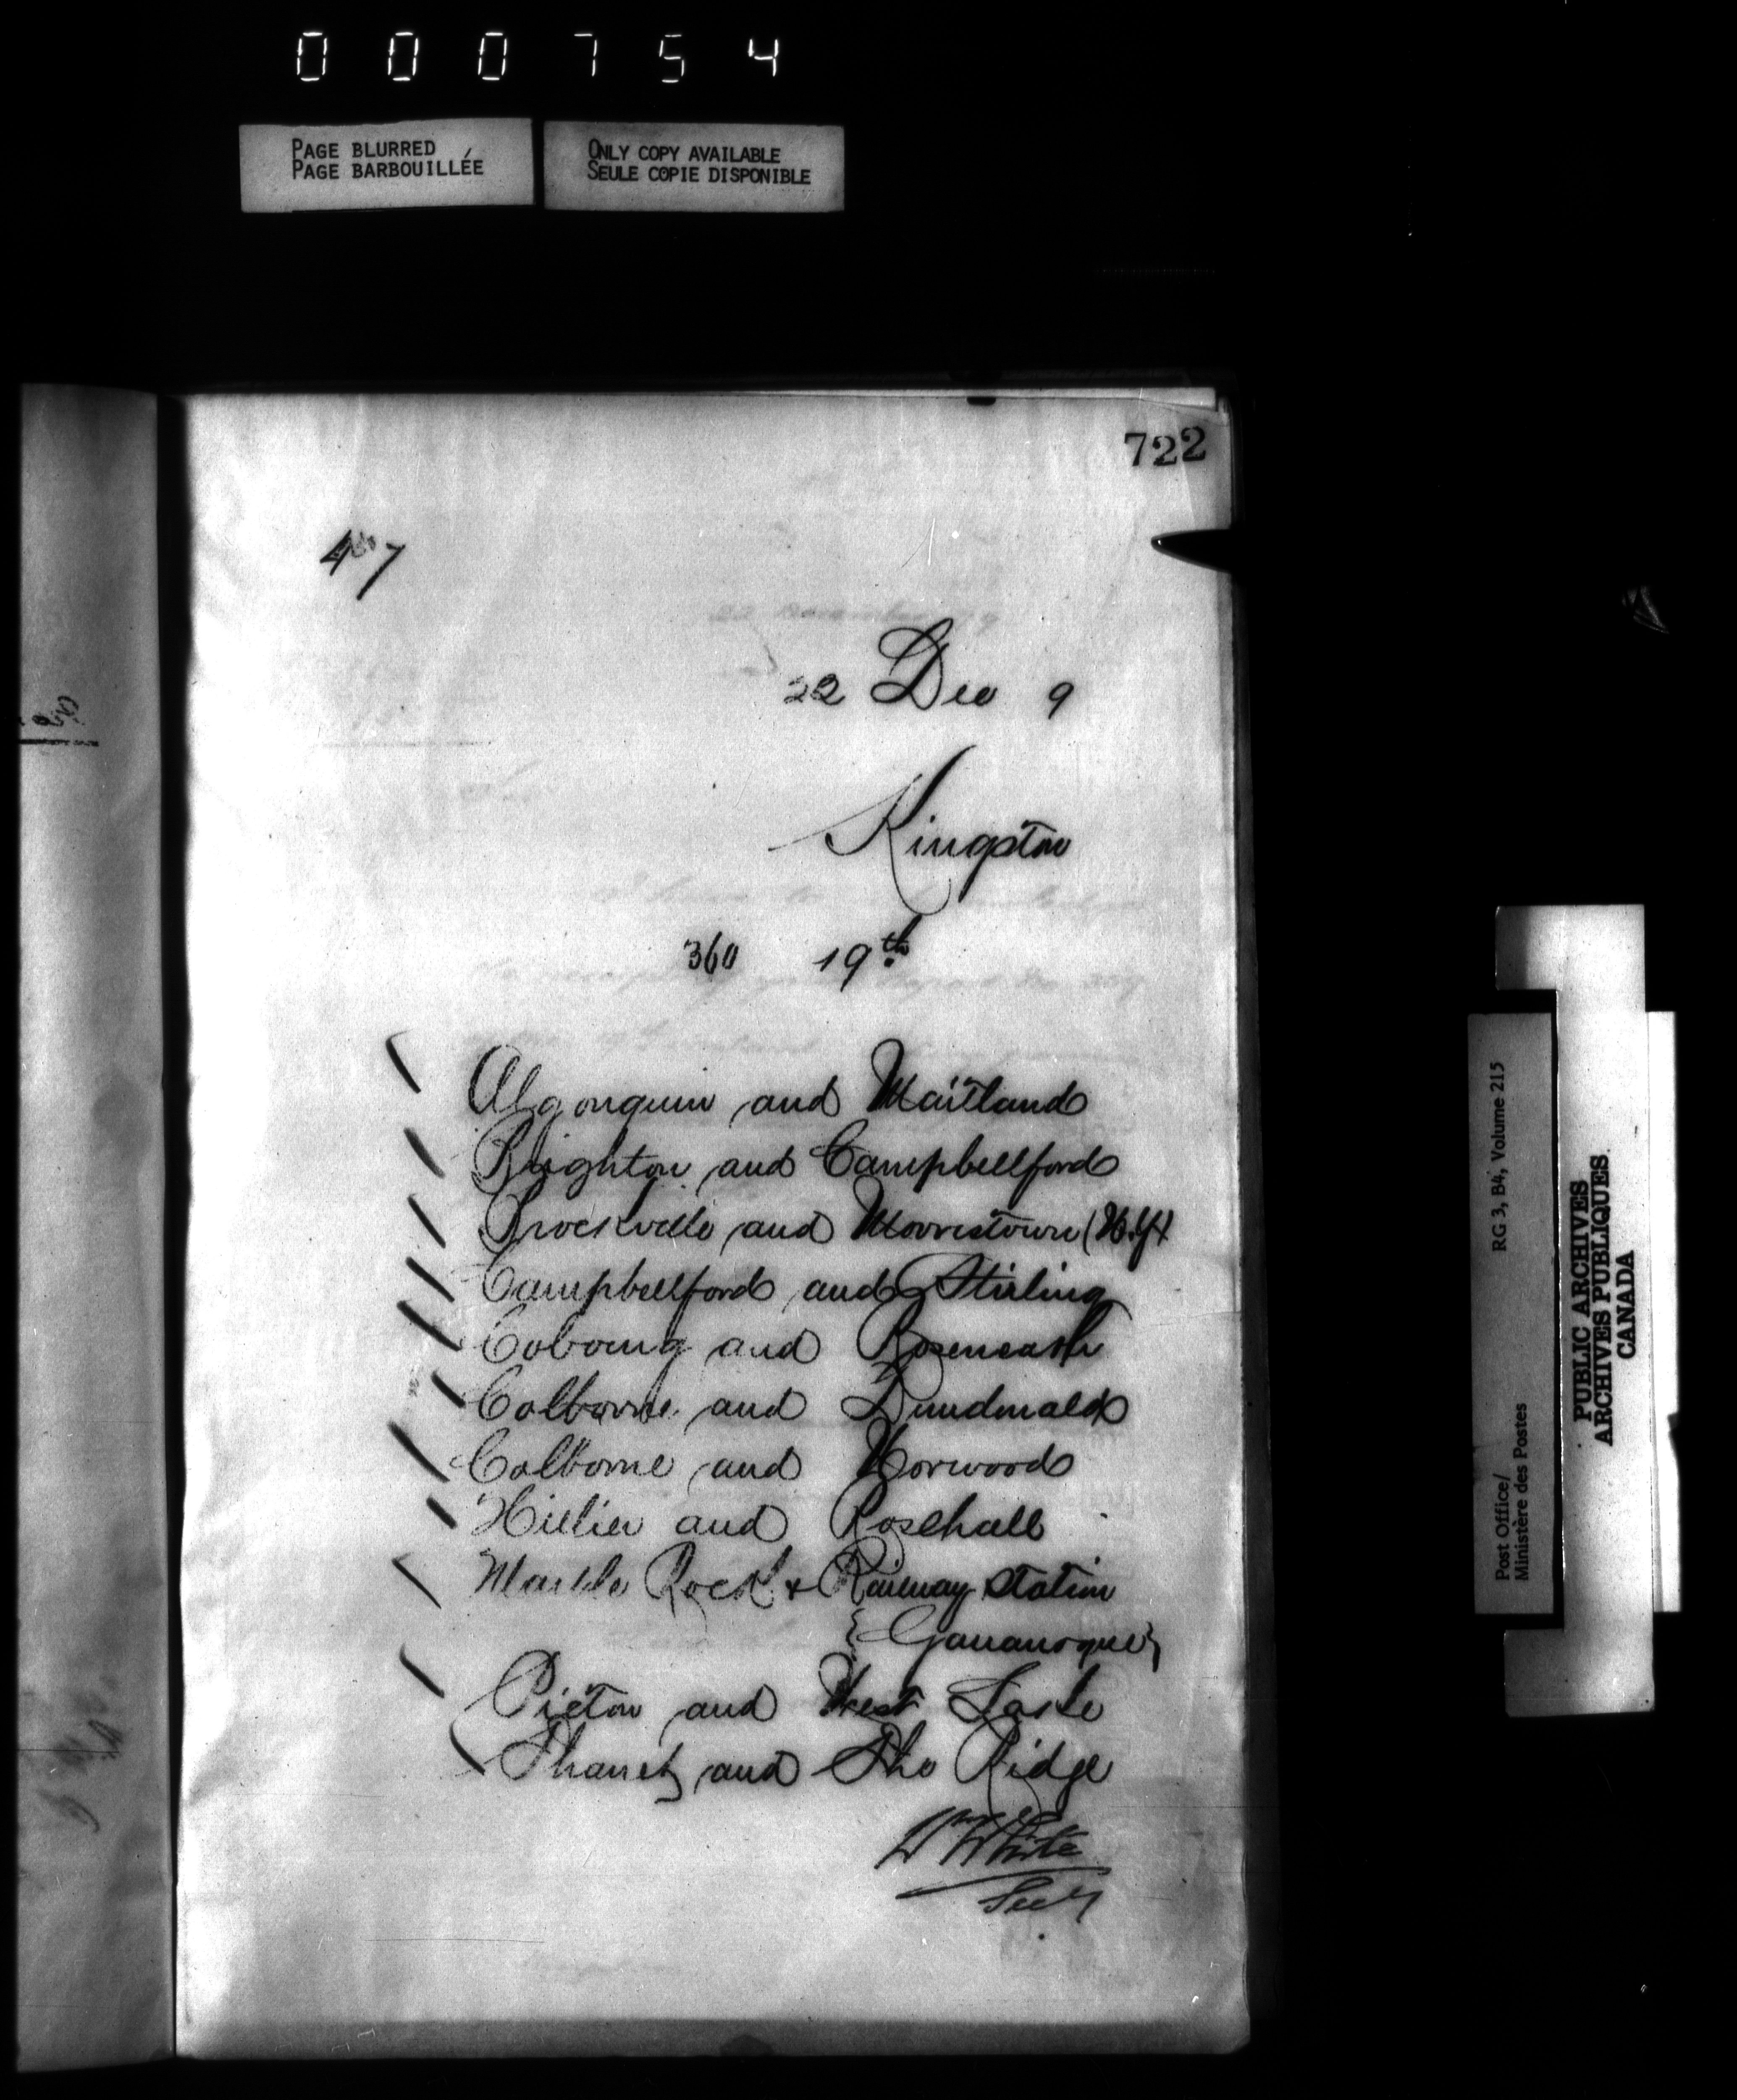 000754
PAGE BLURRED
PAGE BARBOUILLÉE
ONLY COPY AVAILABLE
SEULE COPIE DISPONIBLE
722
22 Dec 9
Kingston
360 19th
Algonquin and Maitland
Brighton and Campbellford
Brockville and Morristown (N.Y)
Campbellford and Stirling
Cobourg and Roseneath
Colborne and Dundonald
Colborne and Norwood
Hillier and Rosehall
Marble Rock & Railway Station
{Gananoque}
Picton and West Lake
Thanet and The Ridge
W White
Secy
Post Office/
Ministère des Postes
RG 3, B4, Volume 215
PUBLIC ARCHIVES
ARCHIVES PUBLIQUES
CANADA